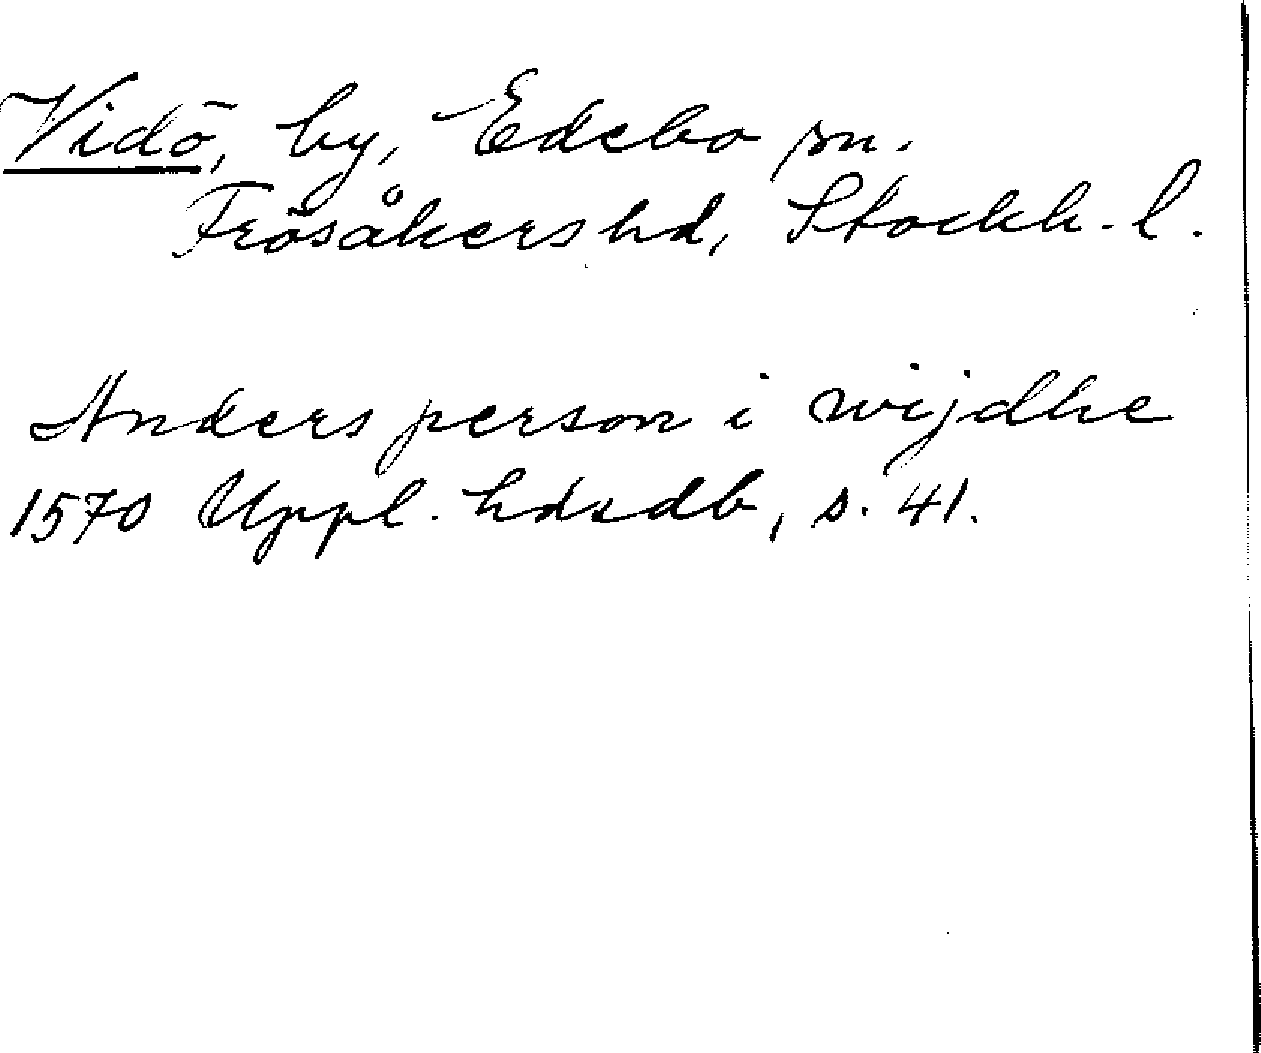 Vidö, by, Edebo sn.
Frösåkers hd, Stockh. l.
Anders person i wijdhe
1570 Uppl. hdsdb, s. 41.